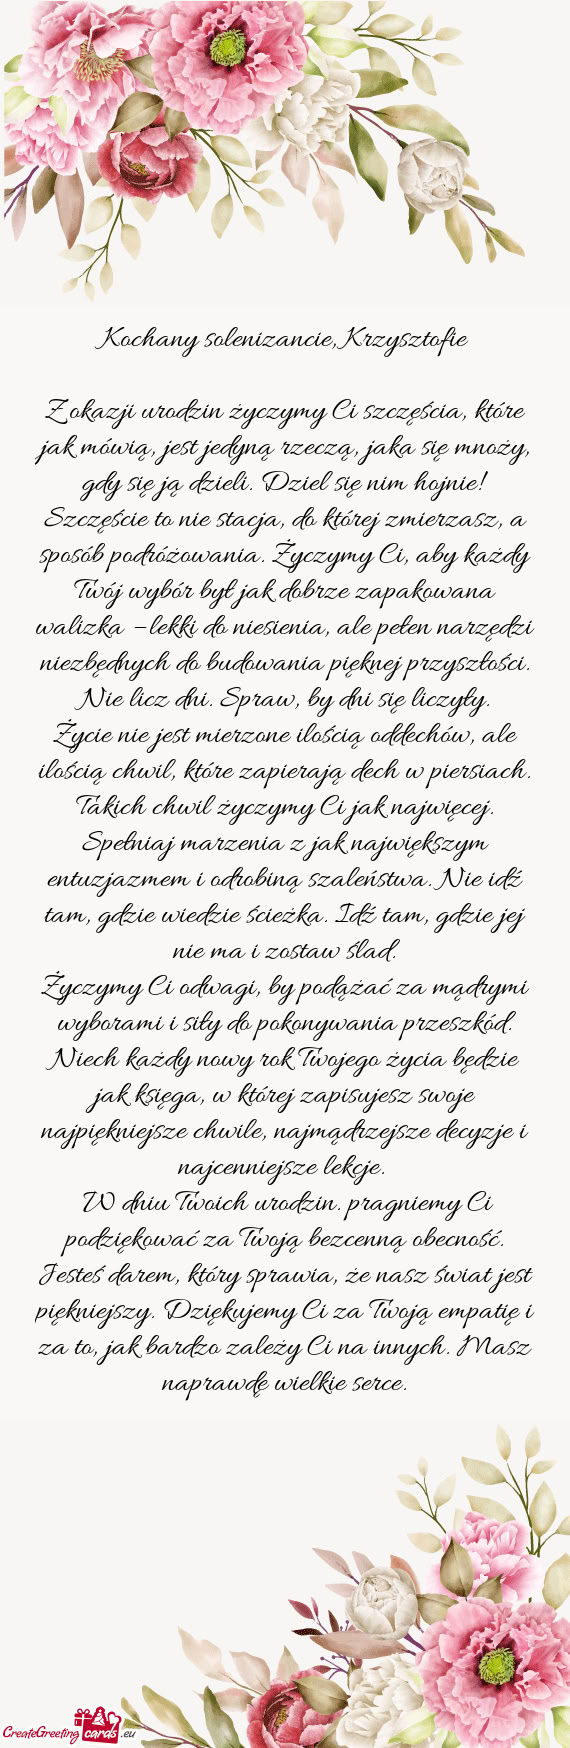 Kochany solenizancie, Krzysztofie
Z okazji urodzin życzymy Ci szczęścia, które
jak mówią, jest jedyną rzeczą, jaka się mnoży,
gdy się ją dzieli. Dziel się nim hojnie!
Szczęście to nie stacja, do której zmierzasz, a
sposób podróżowania. Życzymy Ci, aby każdy
Twój wybór był jak dobrze zapakowana
walizka – lekki do niesienia, ale pełen narzędzi
niezbędnych do budowania pięknej przyszłości.
Nie licz dni. Spraw, by dni się liczyły.
Życie nie jest mierzone ilością oddechów, ale
ilością chwil, które zapierają dech w piersiach.
Takich chwil życzymy Ci jak najwięcej.
Spełniaj marzenia z jak największym
entuzjazmem i odrobiną szaleństwa. Nie idź
tam, gdzie wiedzie ścieżka. Idź tam, gdzie jej
nie ma i zostaw ślad.
Życzymy Ci odwagi, by podążać za mądrymi
wyborami i siły do pokonywania przeszkód.
Niech każdy nowy rok Twojego życia będzie
jak księga, w której zapisujesz swoje
najpiękniejsze chwile, najmądrzejsze decyzje i
najcenniejsze lekcje.
W dniu Twoich urodzin. pragniemy Ci
podziękować za Twoją bezcenną obecność.
Jesteś darem, który sprawia, że nasz świat jest
piękniejszy. Dziękujemy Ci za Twoją empatię i
za to, jak bardzo zależy Ci na innych. Masz
naprawdę wielkie serce.
CreateGreeting cards .eu